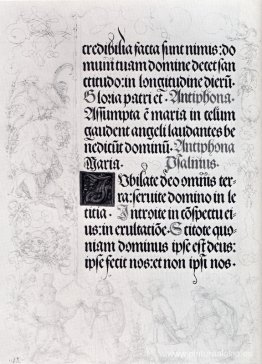 credibilia facta sunt nimis: do
mum tuam domine decet san
ctitudo: in longitudine dierũ.
Gloria patri et̃. Antiphona.
Assumpta ẽ maria in celum
gaudent angeli laudantes be
nedicũt dominũ. Antiphona
Maria. Psalmus.
IUbilate deo omnis ter-
ra: seruite domino in le
titia. Introite in cõspectu ei-
us: in exultatiõe. Scitote quo-
niam dominus ipse est deus:
ipse fecit nos: et non ipsi nos.